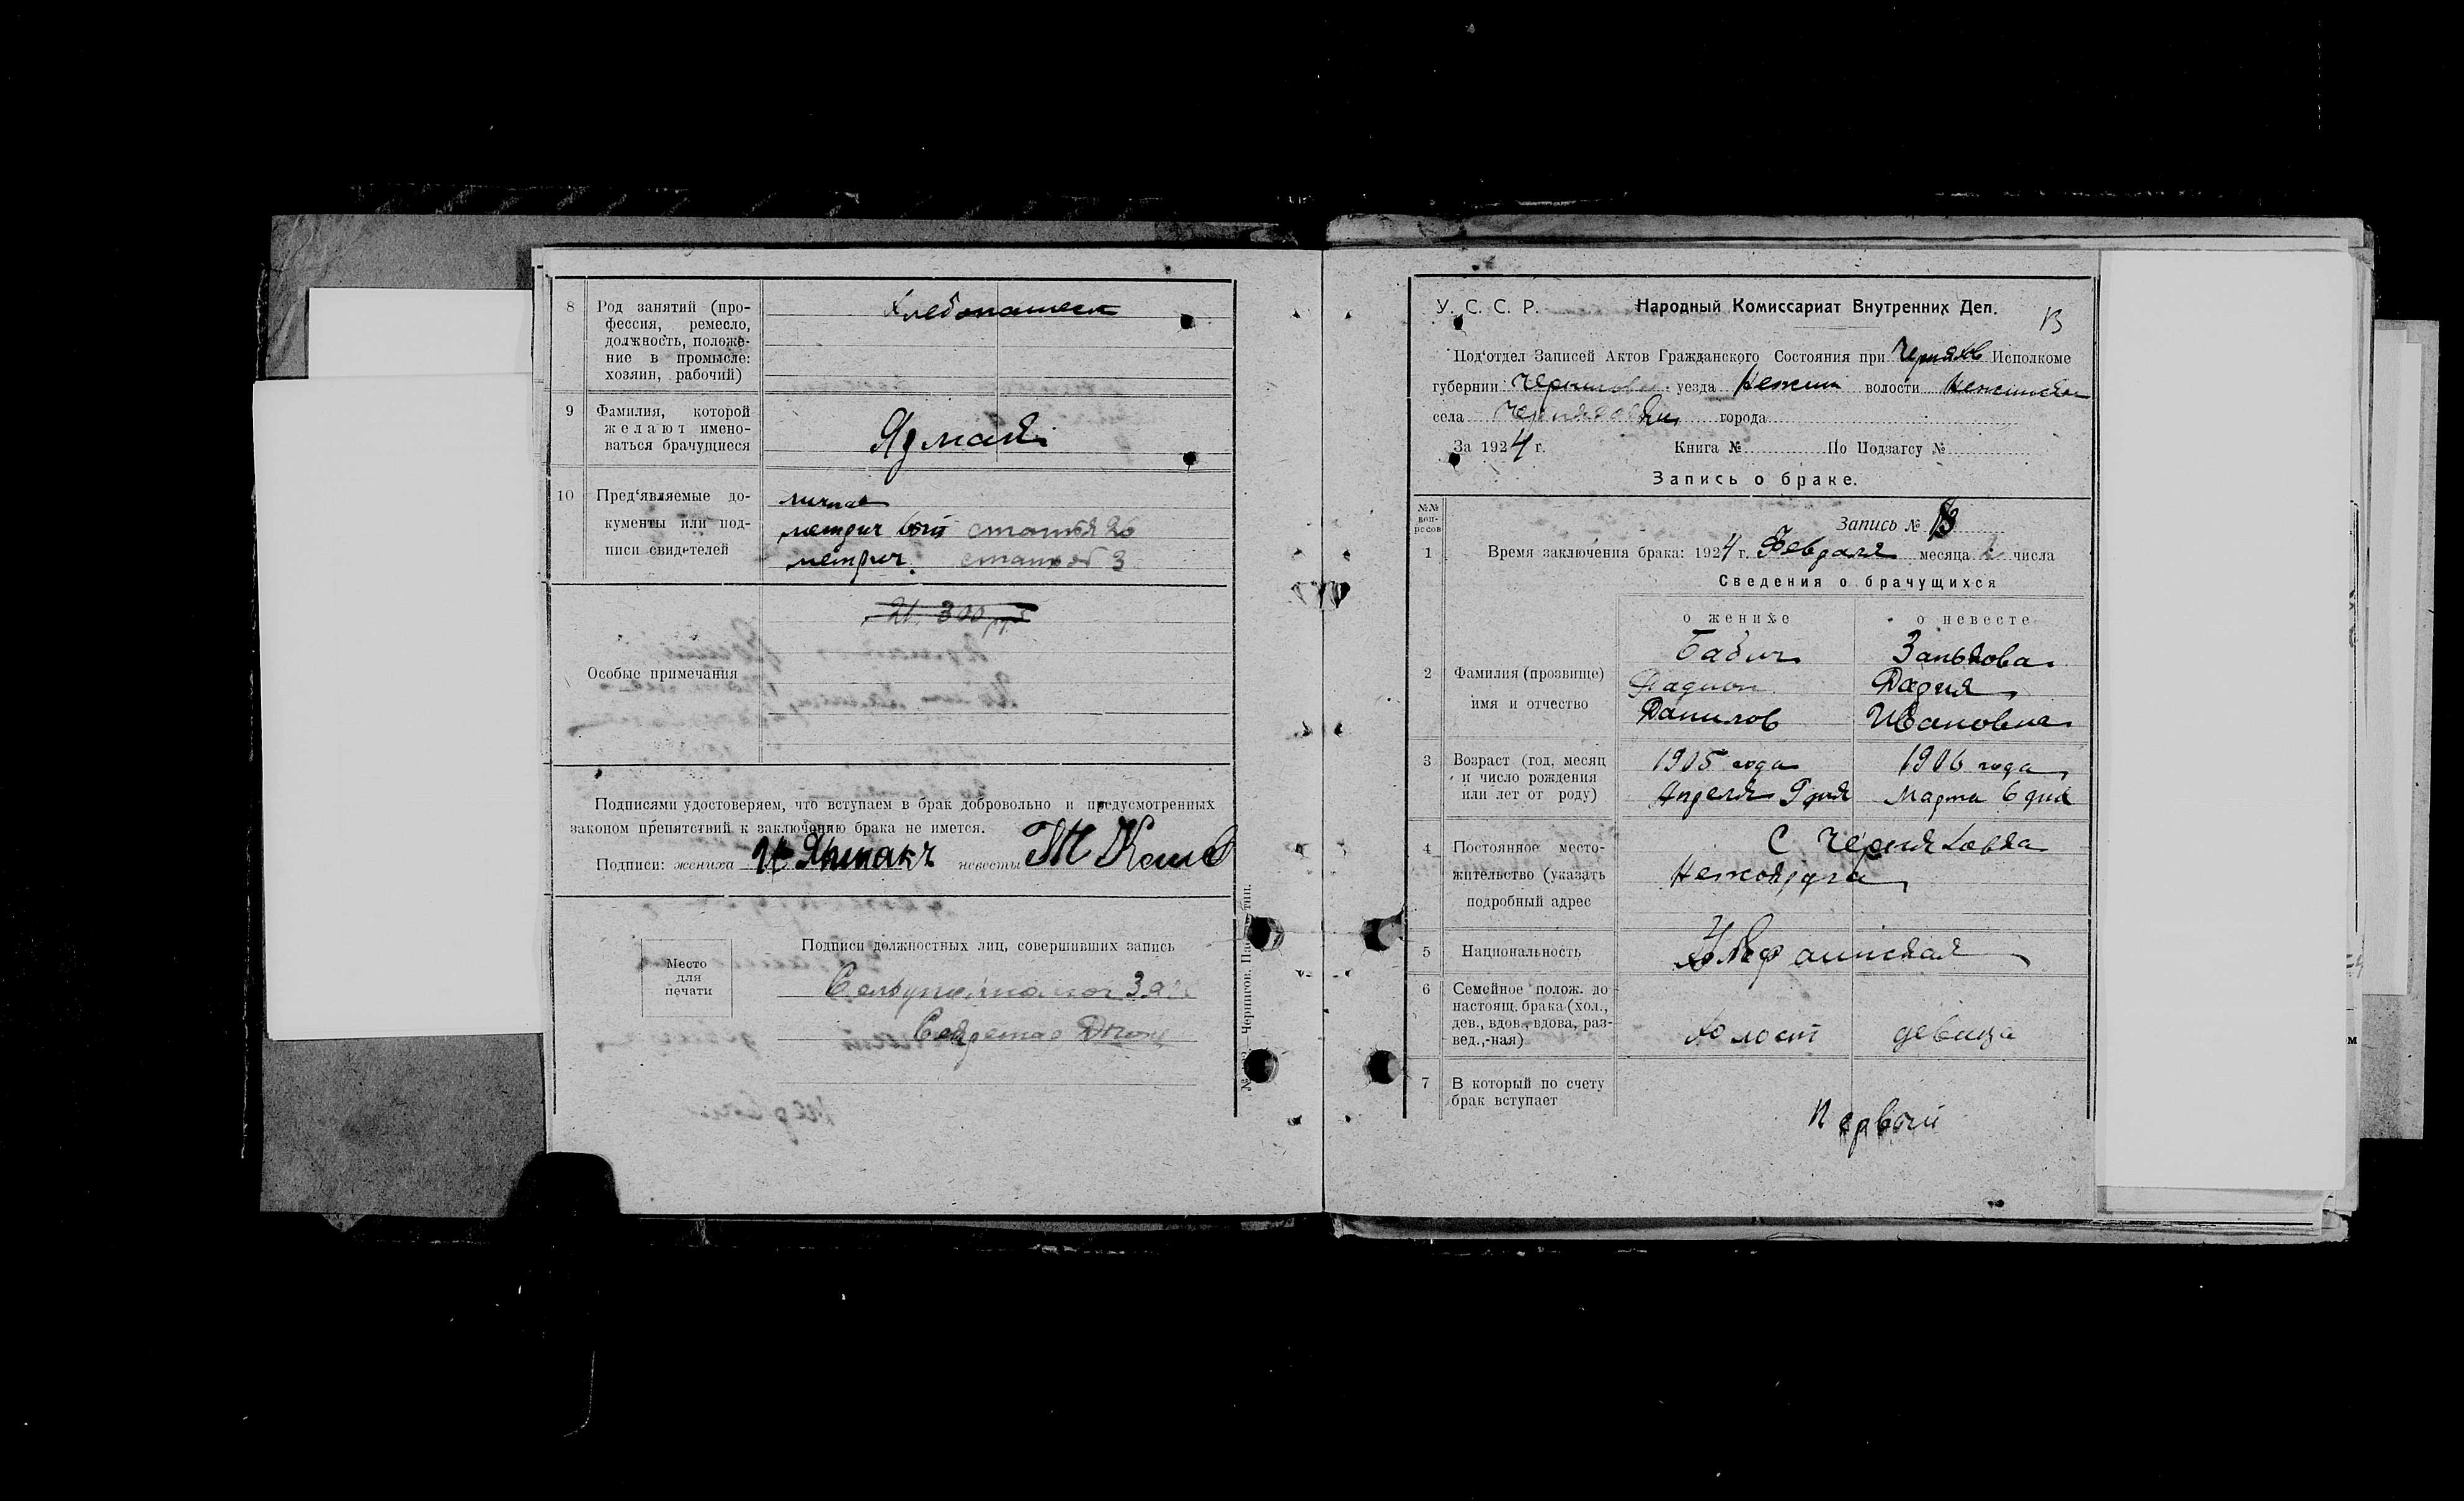 8 Род занятий (про-
фессия, ремесло,
должность, положе-
ние в промысле:
хозяин, рабочий)
Хлебопашест
9 Фамилия, которой
желают имено-
ваться брачущиеся
10 Пред‘являемые до-
кументы или под-
писи свидетелей
личная
метрич статья 20
метрич. статья 3
Особые примечания
300
Подписями удостоверяем, что вступаем в брак добровольно и предусмотренных
законом препятствий к заключению брака не имется.
Подписи: жениха невесты
Место
для
печати
Подписи должностных лиц, совершивших запись
Секретар
У. С. С. Р. Народный Комиссариат Внутренних Дел.
13
Под‘отдел Записей Актов Гражданского Состояния при Черняхов Исполкоме
губернии Чернигов уезда Нежин волости Нежинской
села Черняховки города
За 1924 г. Книга № По Подзагсу №
Запись о браке.
№№
воп-
росов
Запись № 13
1 Время заключения брака: 1924 г. Февраля месяца 2 числа
Сведения о брачущихся
о женихе о невесте
2 Фамилия (прозвище)
имя и отчество
Бабич Занькова
Радион Дария
Данилов Ивановна
3 Возраст (год, месяц
и число рождения
или лет от роду)
1905 года 1906 года
Апреля 9 дня Марта 6 дня
4 Постоянное место-
жительство (указать
подробный адрес
С Черняховка
5 Национальность
Украинская
6 Семейное полож. до
настоящ. брака (хол.,
дев., вдов., вдова, раз-
вед.,-ная)
холост девица
7 В который по счету
брак вступает
Первый